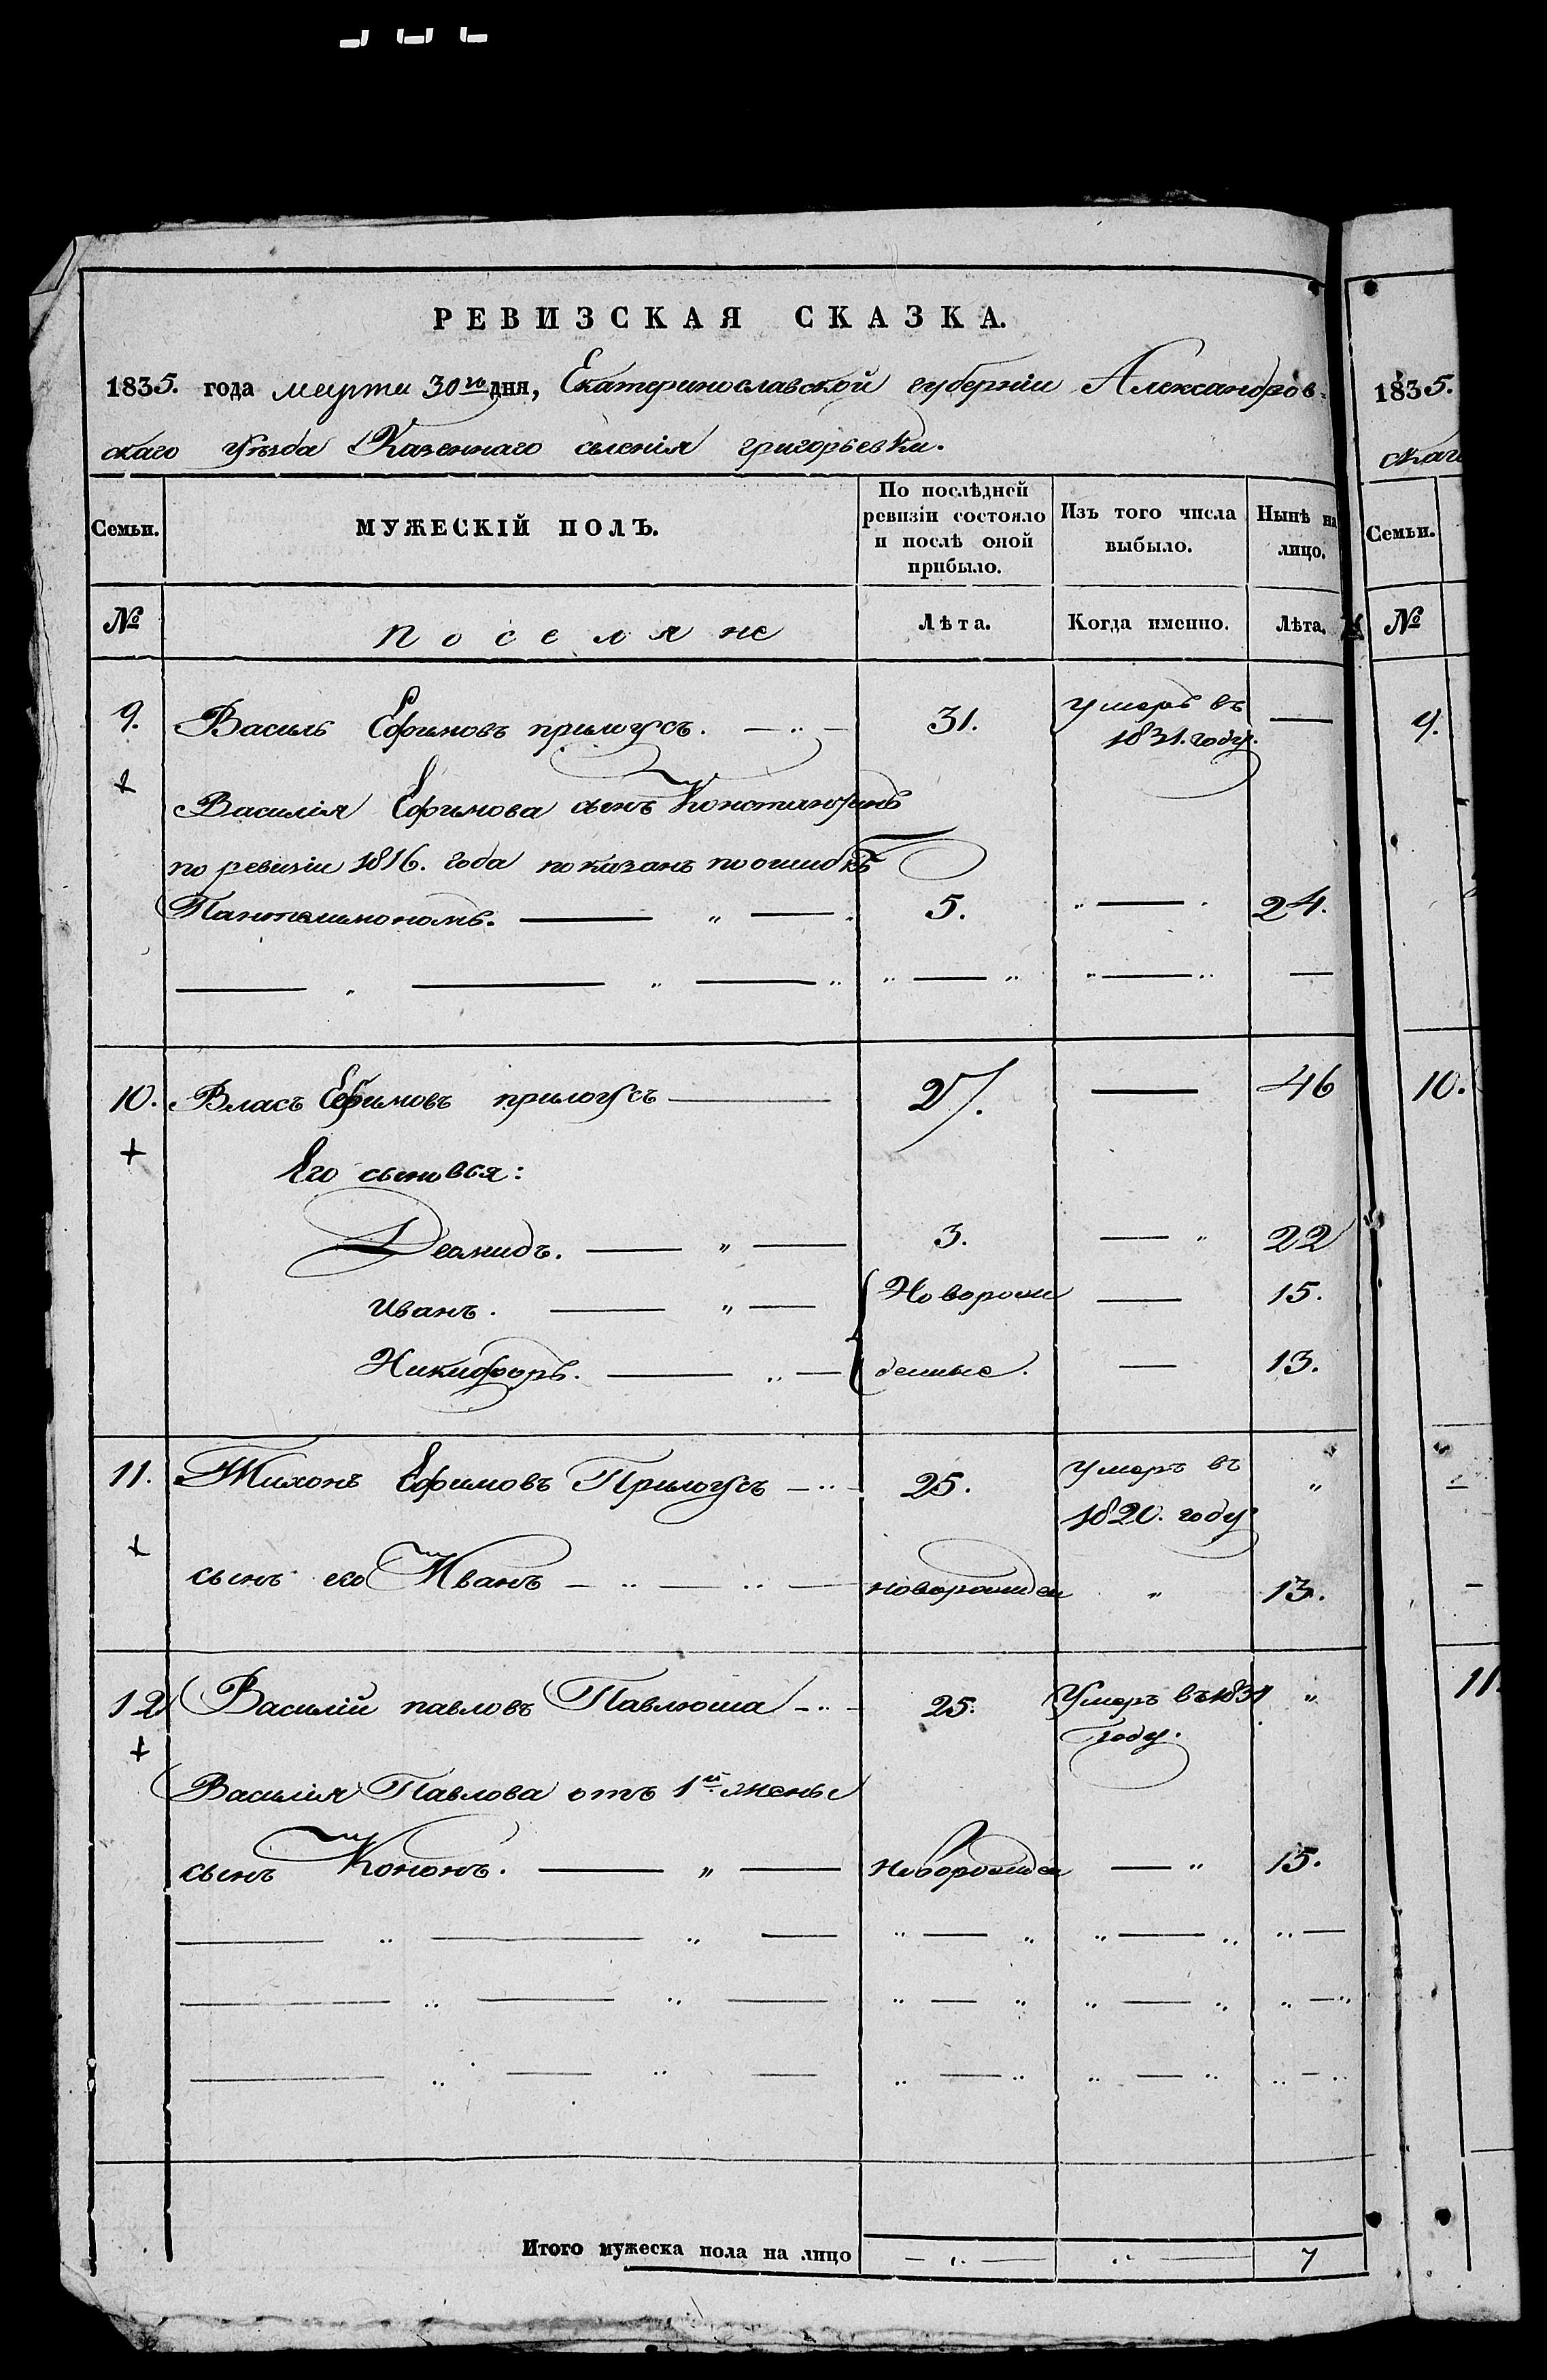 РЕВИЗСКАЯ СКАЗКА.
1835. года марта 30го дня, Екатеринославской губерніи Александров=
скаго уѣзда Казеннаго селенія григорьевки.
Семьи. МУЖЕСКІЙ ПОЛЪ. По послѣдней ревизіи состояло и послѣ оной прибыло. Изъ того числа выбыло. Нынѣ на лицо.
№ Поселяне Лѣта. Когда именно. Лѣта.
9. Василь Ефимовъ прилогусъ. 31. умеръ въ
1831. году.
Василія Ефимова сынъ Константинъ
по ревизіи 1816. года показанъ по ошибкѣ
Пантелимономъ. 5. 24.
10. Власъ Ефимовъ прилогусъ 27. 46
Его сыновья:
Демидъ. 3. 22
иванъ. Новорож 15.
Никифоръ. денные. 13.
11. Тихонъ Ефимовъ Прилогусъ 25. умеръ въ
1820. году
сынъ его Иванъ новорожден 13.
12 Василій павловъ Павлюша 25. Умеръ въ 1831
году.
Василія Павлова отъ 1й жены
сынъ Кононъ. новорожден 15.
Итого мужеска пола на лицо 7
1835.
скаго
Семьи.
№
9.
10.
11.